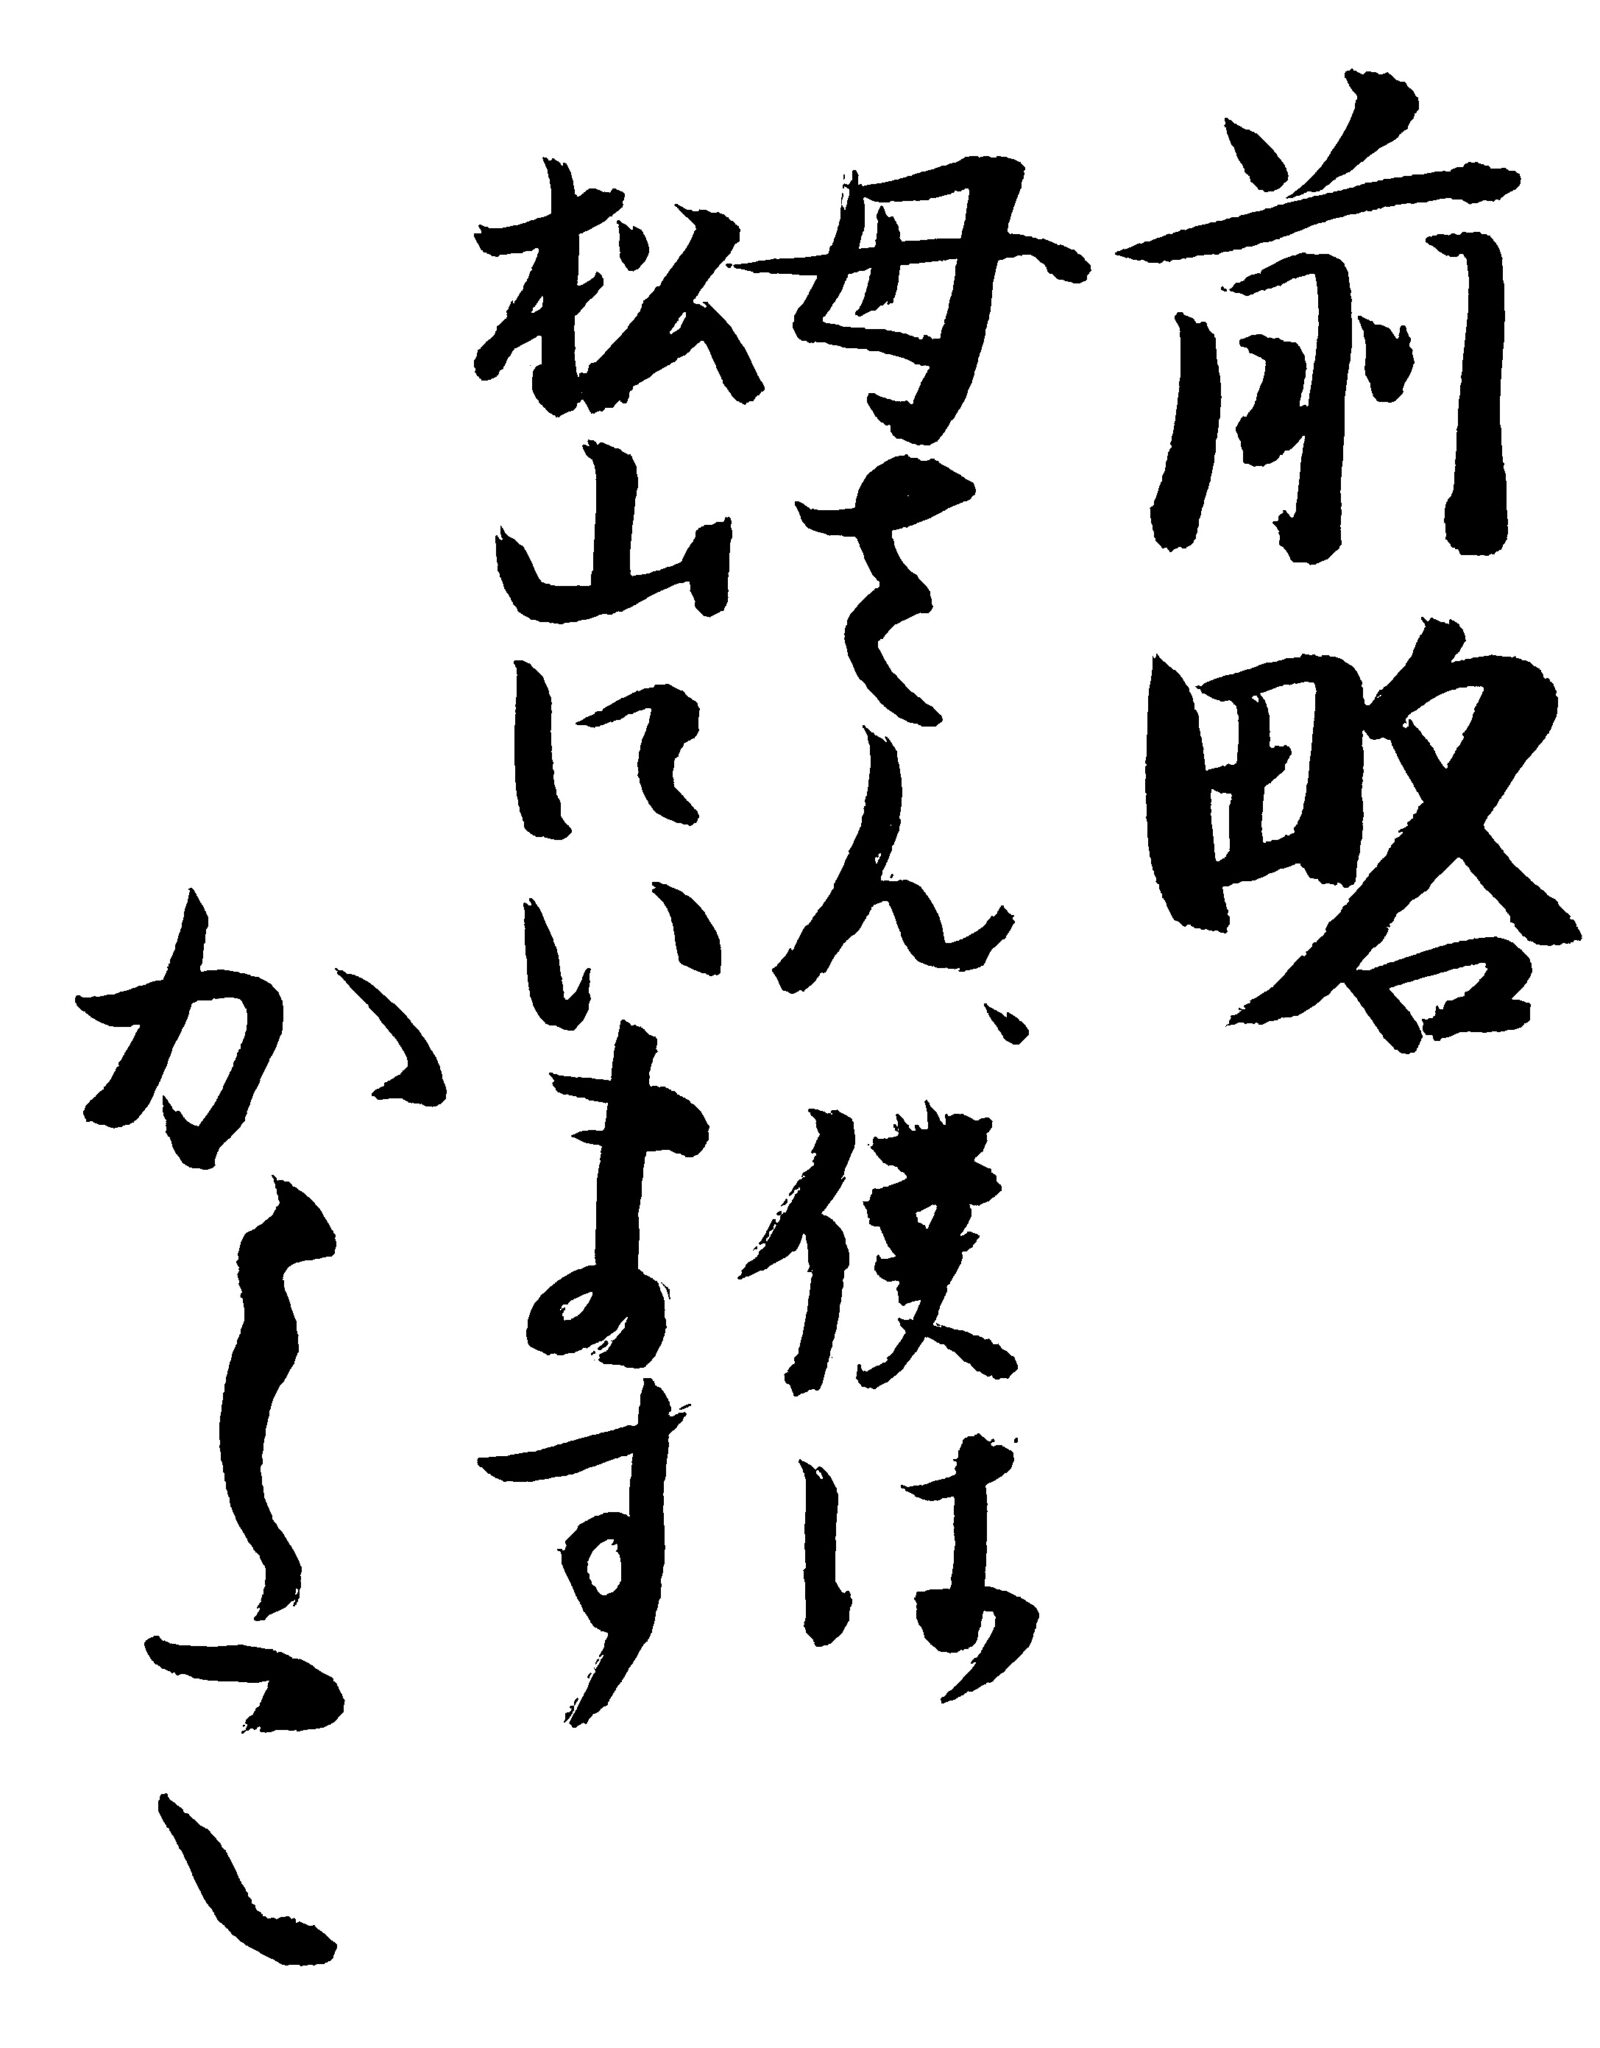 前略
母さん、僕は
松山にいます
かしこ